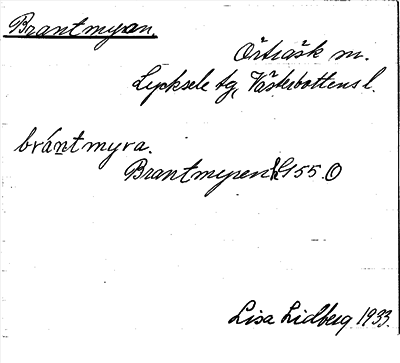 Brantmyran.
Örträsk m.
Lycksele tg, Västerbottens l.
brántmyra.
Brantmyren 155.O
Lisa Lidberg 1933.